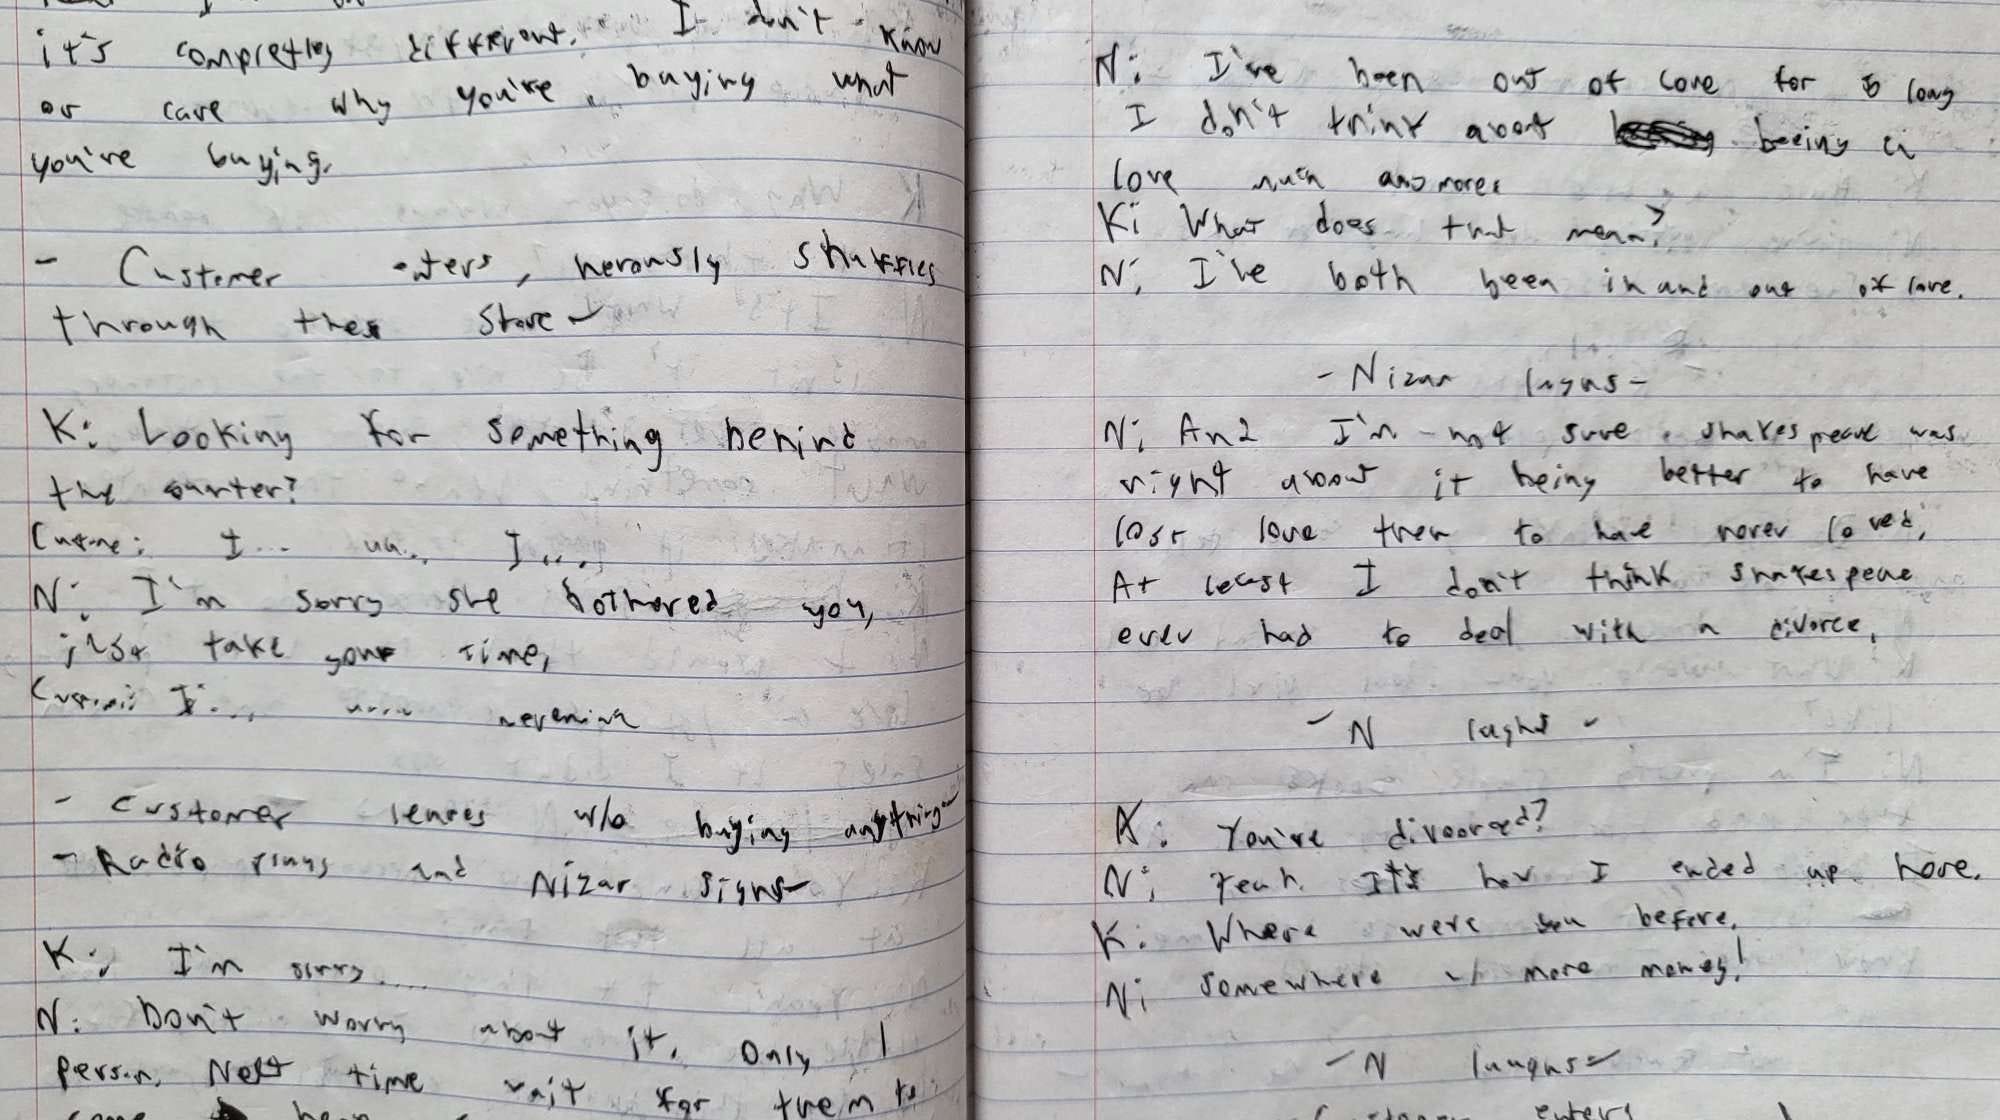 it's completley different. I don't know
or care why you're buying what
you're buying.
- Customer enters, nerously shuffles
through the store -
K: Looking for something behind
the counter?
I... uh... I...
N: I'm sorry she bothered you,
just take your time,
I...
- Customer leaves w/o buying anything -
- Radio plays and Nizar sighs -
K: I'm sorry....
N: Don't worry about it. Only 1
person. Next time wait for them to
N: I've been out of love for so long
I don't think about beeing in
love much anymore.
K: What does that mean?
N: I've both been in and out of love.
- Nizar laughs -
N: And I'm not sure shakespeare was
right about it being better to have
lost love then to have never loved.
At least I don't think shakespeare
ever had to deal with a divorce.
- N laughs -
K: You're divorced?
N: Yeah. It's how I ended up here.
K: Where were you before.
N: Somewhere w/ more money!
- N laughs -
Customer enters